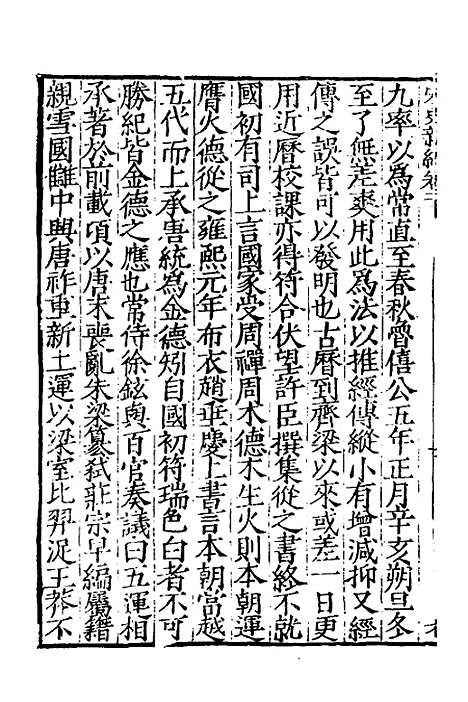 九率以為常直至春秋魯僖公五年正月辛亥朔旦冬
至了無差爽用此為法以推經傳縱小有增減抑又經
傳之誤皆可以發明也古曆到齊梁以來或差一日更
用近曆校課亦得符合伏望許臣撰集從之書終不就
國初有司上言國家受周禪周木德木生火則本朝運
膺火德從之雍熙元年布衣趙垂慶上書言本朝當越
五代而上承唐統為金德矧自國初符瑞色白者不可
勝紀皆金德之應也常侍徐鉉與百官奏議曰五運相
承著於前載項以唐末喪亂朱梁篡弒莊宗早編屬籍
親雪國讎中興唐祚重新土運以梁室比羿浞王莽不